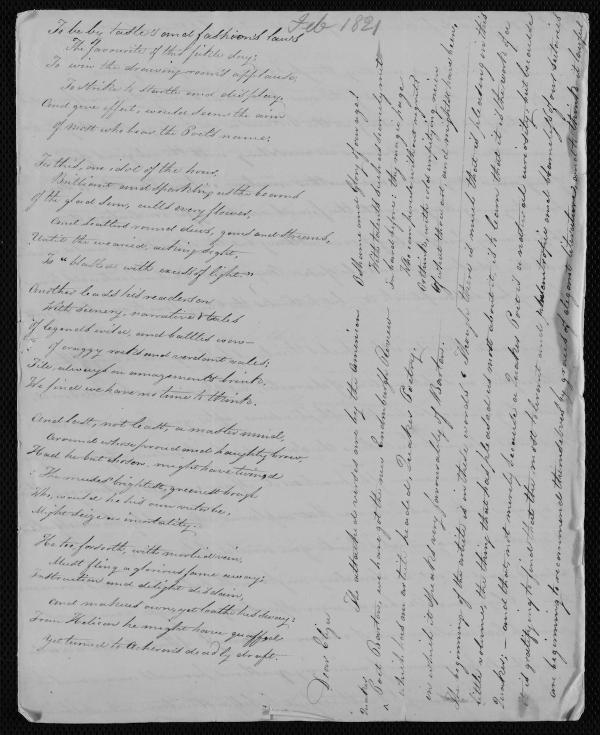 Feb 1821
To be by taste's and fashion's laws
The favourite of this fickle day;
To win the drawing room's applause,
To strike to startle and display,
And give effect, would seem the aim
of most who bear the Poet's name;
For this, one idol of the hour,
Brilliant and sparkling as the beams
of the glad sun, culls every flower,
And scatters round dews, gems and streams,
Until the wearied, aching sight,
Is "blasted with excess of light."
Another leads his readers on
With scenery, narrative & tales
of legends wild, and battles won—
of craggy rocks and verdant vales;
Till, always on amazement's brink,
We find we have no time to think.
And last, not least, a master mind,
Around whose proud and haughty brow,
Had he but chosen, might have twin'd
The muses brightest, greenest bough
Who, would he his own victor be,
Might seize on immortality,
He too forsooth, with morbid vein,
Must fling a glorious fame away;
Instruction and delight disdain,
And make us own, yet loathe his sway:
From Helicon he might have quaff'd
yet turned to Acheron's deadly draft.
Dear Eliza
The attached verses are by the American
Quaker
^ Poet Barton, we have got the new Edinburgh Review
which has an article headed, Quaker Poetry,
in which it speaks very favourably of Barton.
The beginning of the article is in these words "Though there is much that is pleasing in this
little volume, the thing that has pleased us most about it, is to learn that it is the work of a
Quaker;—and that, not merely because a Quaker Poet is a natural curiosity, but because
it is gratifying to find that the most tolerant and philanthropic and blameless of our sectaries
are beginning to recommend themselves by graces of elegant literature, and to think it lawful
A shame and glory of our age!
With talents such as scarcely met
in bard before: thy magic page
Who can peruse without regret?
Or think, with cold unpitying mien
of what thou art, and might'st have been,